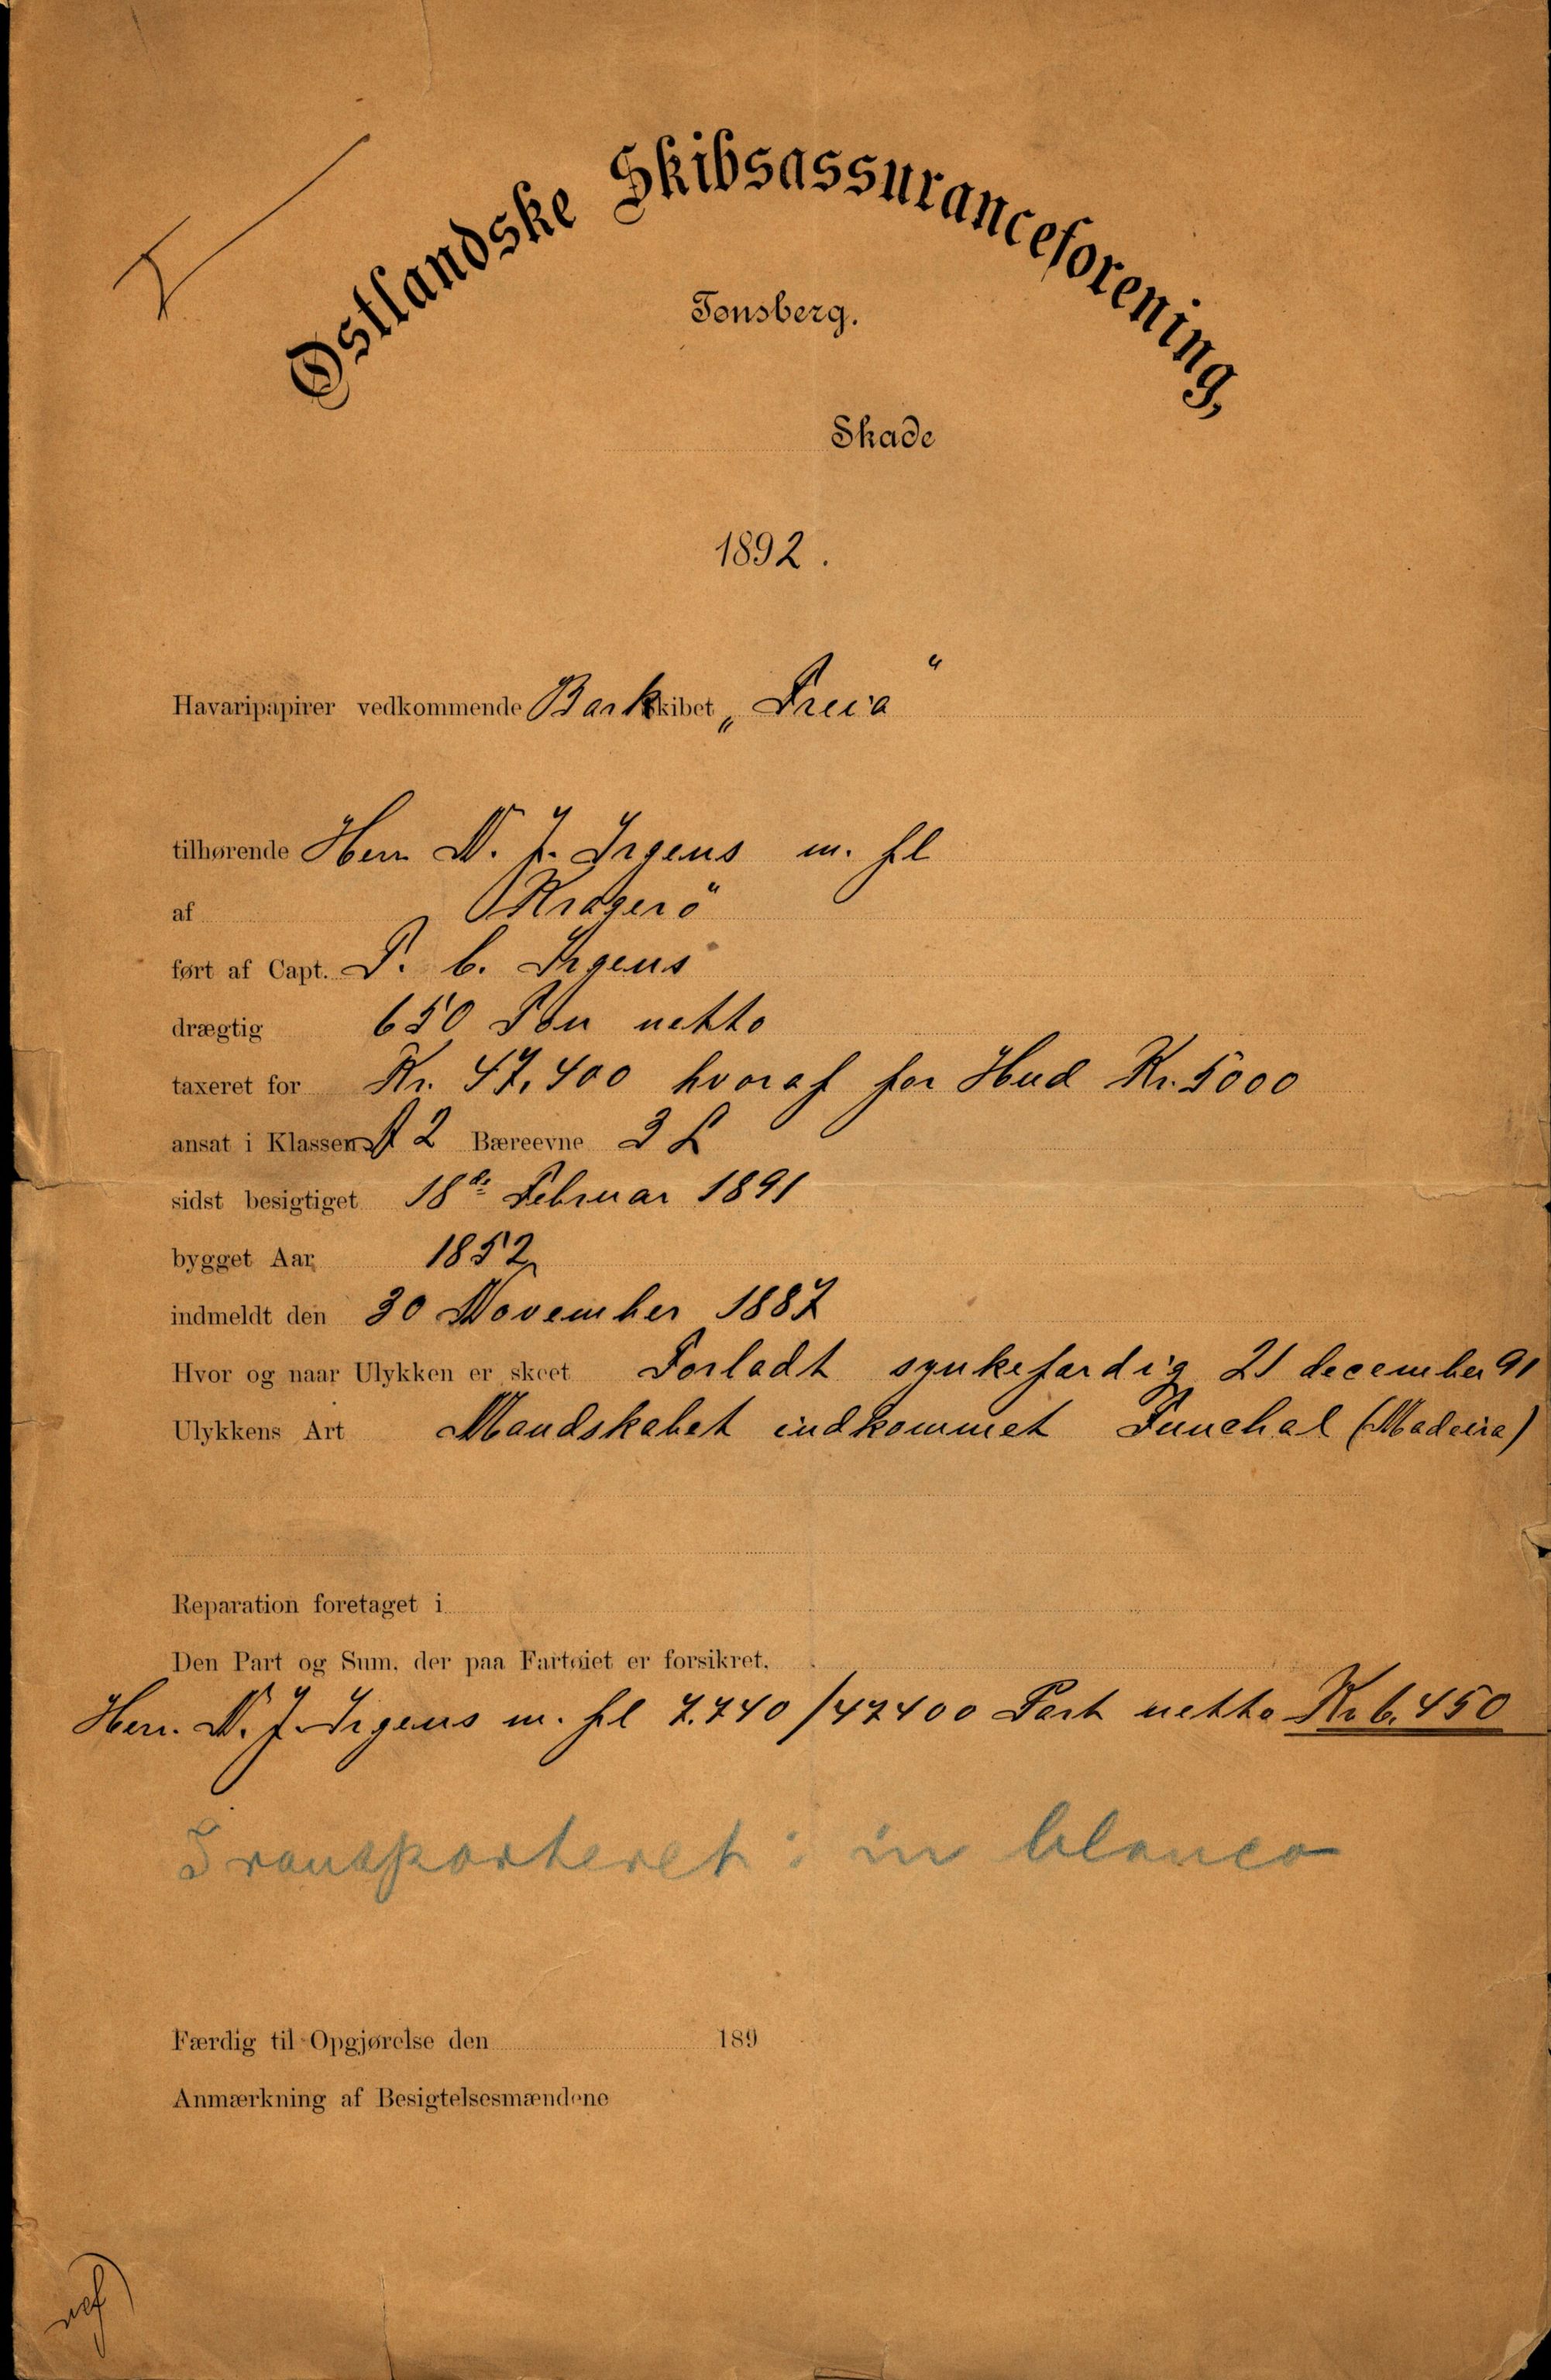 Østlandske Skibsassuranceforening,
Tønsberg.
Skade
1892.
Havaripapirer vedkommende Barkskibet „Freia“
tilhørende Herr N. J. Irgens m. fl
af Kragerö
ført af Capt. P. C. Irgens
drægtig 650 Ton netto
taxeret for Kr. 47.400 hvoraf for Hud Kr. 5000
ansat i Klassen A 2 Bæreevne 3 L
sidst besigtiget 18de Februar 1891
bygget Aar 1852
indmeldt den 30 November 1887
Hvor og naar Ulykken er skeet Forladt synkefærdig 21 december 91
Ulykkens Art Mandskabet indkommet Funchal (Madeira)
Reparation foretaget i
Den Part og Sum, der paa Fartøiet er forsikret.
Herr. N. J. Irgens m. fl 7.740/47400 Part netto Kr 6.450
Transporteret: in blanco
Færdig til Opgjørelse den 189
Anmærkning af Besigtelsesmændene